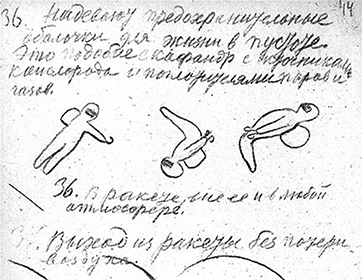 36. Надевают предохранительные
оболочки для жизни в пустоте.
Это подобие скафандр с источником
кислорода и поглотителями паров и
газов.
36. В ракете, вне ее и в любой
атмосфере.
37. Выход из ракеты без потери
воздуха.